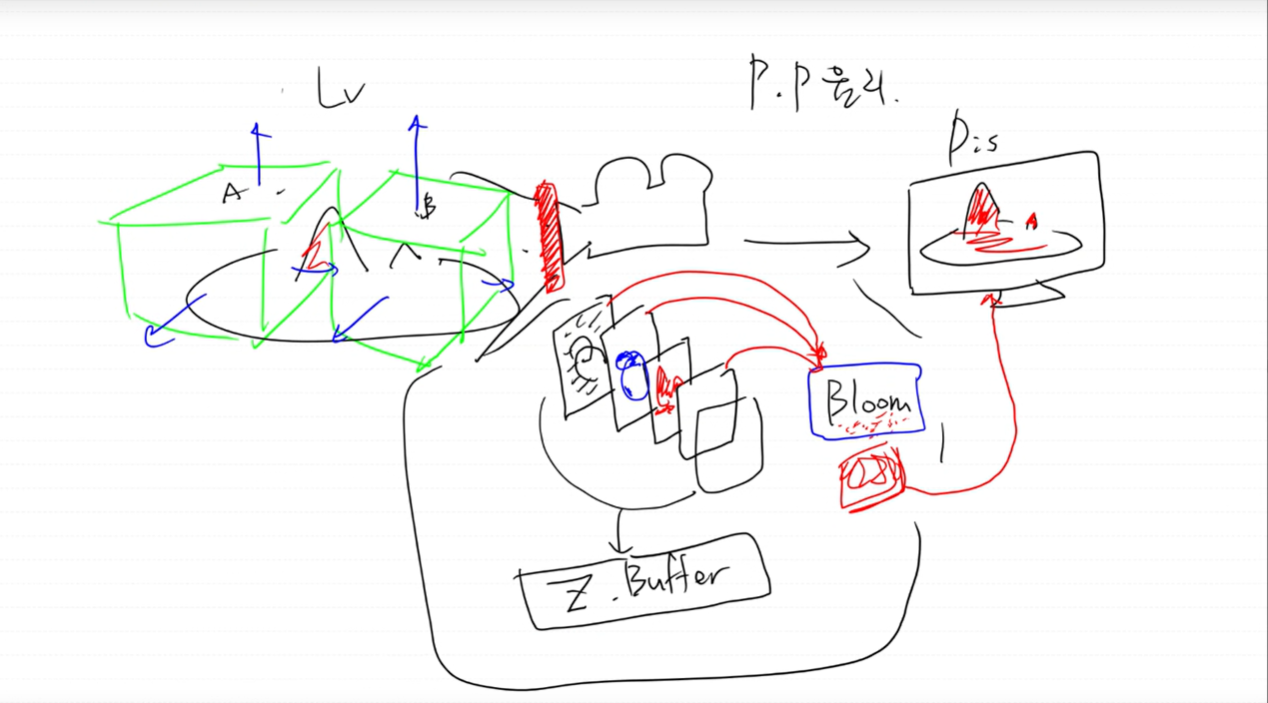 Lv
P.P 원리.
Dis
A
B
A
Bloom
Z.Buffer